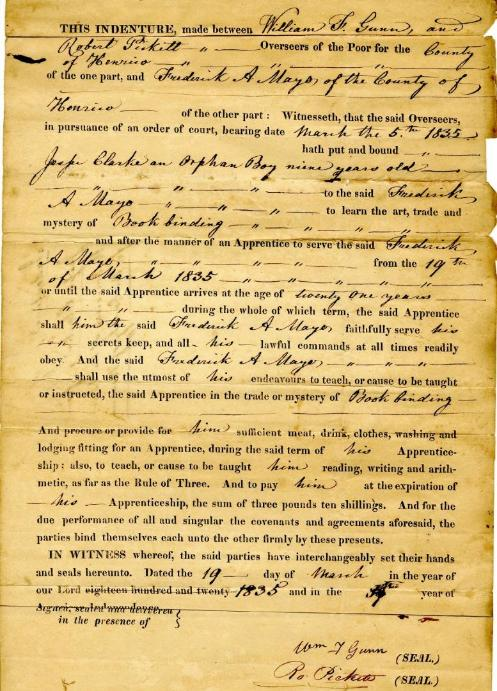 THIS INDENTURE, made between William F. Gunn, and
Robert Pickett " — Overseers of the Poor for the County
of Henrico " " " " "
of the one part, and Frederick A Mayo, of the County of
Henrico — of the other part: Witnesseth, that the said Overseers,
in pursuance of an order of court, bearing date March the 5.th 1835
hath put and bound — "
Jesse Clarke an Orphan Boy nine years old —
" " " — to the said Frederick
A Mayo " " " — to learn the art, trade and
mystery of Book binding — " " "
— and after the manner of an Apprentice to serve the said Frederick
A Mayo, " " " " from the 19th
of March 1835 " " " " "
or until the said Apprentice arrives at the age of twenty one years
" " during the whole of which term, the said Apprentice
shall him the said Frederick A Mayo, faithfully serve his
— " secrets keep, and all — his — lawful commands at all times readily
obey. And the said Frederick A Mayo, " " "
— shall use the utmost of his endeavours to teach, or cause to be taught
or instructed, the said Apprentice in the trade or mystery of Book binding
And procure or provide for him sufficient meat, drink, clothes, washing and
lodging fitting for an Apprentice, during the said term of his Apprentice-
ship: also, to teach, or cause to be taught him reading, writing and arith-
metic, as far as the Rule of Three. And to pay him at the expiration of
— his — Apprenticeship, the sum of three pounds ten shillings. And for the
due performance of all and singular the covenants and agreements aforesaid, the
parties bind themselves each unto the other firmly by these presents.
IN WITNESS whereof, the said parties have interchangeably set their hands
and seals hereunto. Dated the 19 — day of March in the year of
our Lord eighteen hundred and twenty 1835 and in the year of
Signed, sealed and delivered
in the presence of }
Wm F Gunn (SEAL.)
Ro. Pickett (SEAL.)